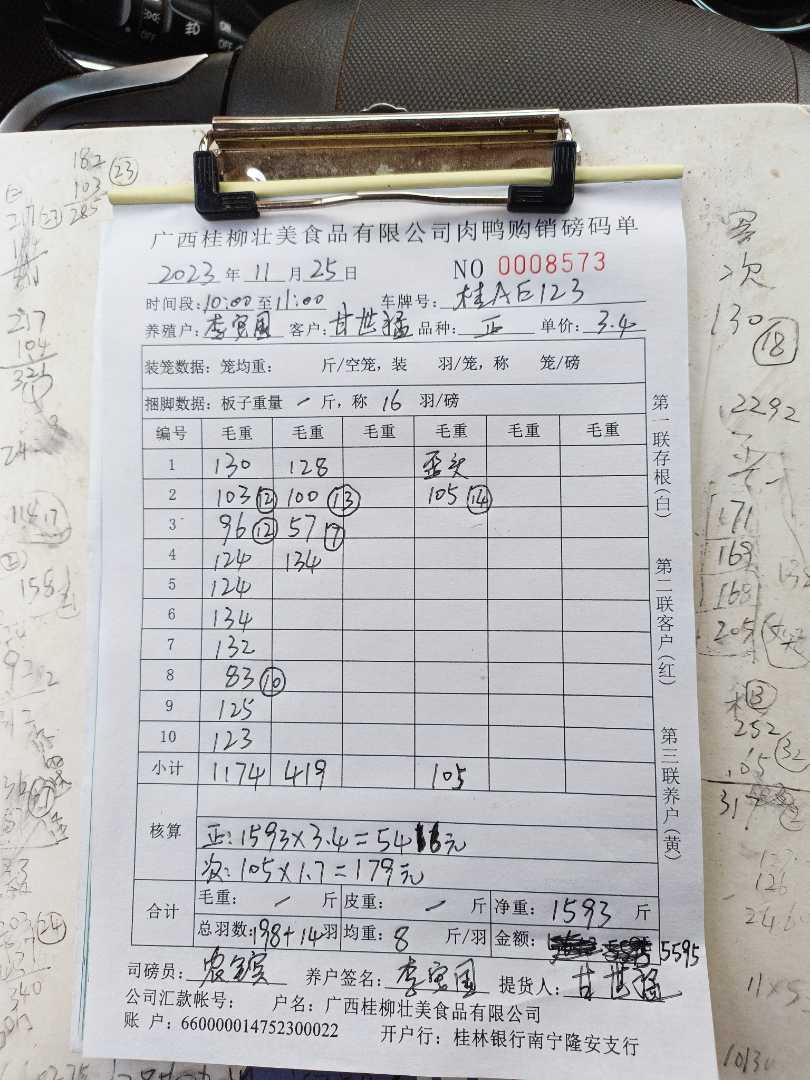 广西桂柳壮美食品有限公司肉鸭购销磅码单
2023年11月25日 NO 0008573
时间段:10:00至11:00 车牌号:桂AE123
养殖户:李宽国 客户:甘世猛 品种:正 单价:3.4
装笼数据:笼均重: 斤/空笼,装 羽/笼,称 笼/磅
捆脚数据:板子重量 / 斤,称 16 羽/磅
编号 毛重 毛重 毛重 毛重 毛重 毛重
1 130 128 歪头
2 103⑫ 100⑬ 105⑭
3 96⑫ 57⑦
4 124 134
5 124
6 134
7 132
8 83⑩
9 125
10 123
小计 1174 419 105
核算
正:1593×3.4=5416元
次:105×1.7=179元
合计
毛重: / 斤 皮重: / 斤 净重:1593 斤
总羽数:198+14羽 均重:8 斤/羽 金额: 5595
司磅员: 养户签名:李宽国 提货人:甘世猛
公司汇款帐号: 户名:广西桂柳壮美食品有限公司
账户:660000014752300022 开户行:桂林银行南宁隆安支行
第一联存根(白)
第二联客户(红)
第三联养户(黄)
182
103 ㉓
285
217
104
158
340
次
130
⑱
2292
171
169
168
205
252
65
㉜
317
126
246